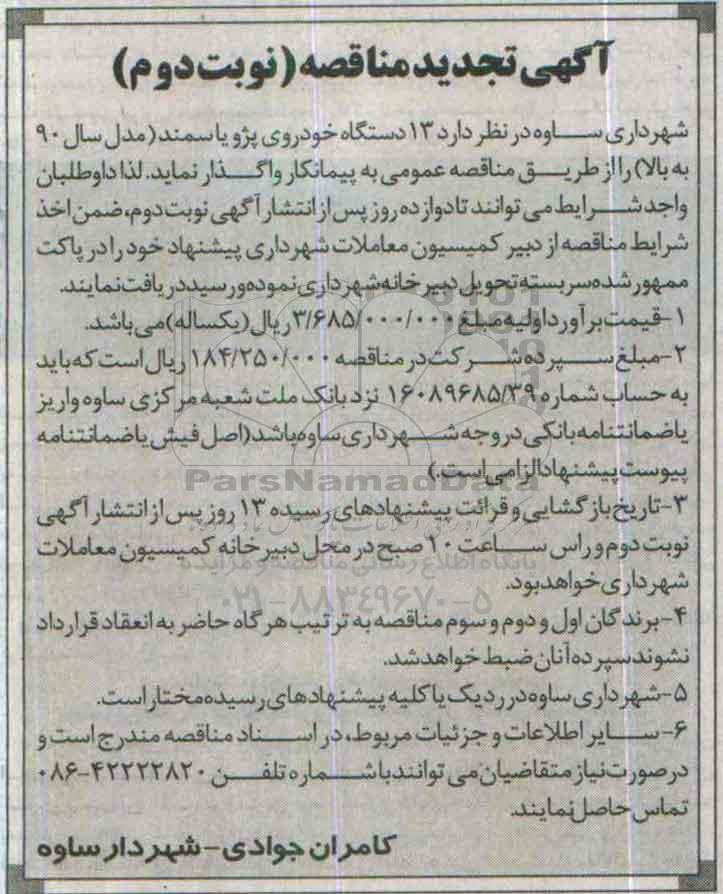 آگهی تجدید مناقصه (نوبت دوم)
شهرداری ساوه در نظر دارد ۱۳ دستگاه خودروی پژو یا سمند (مدل سال ۹۰
به بالا) را از طریق مناقصه عمومی به پیمانکار واگذار نماید. لذا داوطلبان
واجد شرایط می توانند تا دوازده روز پس از انتشار آگهی نوبت دوم، ضمن اخذ
شرایط مناقصه از دبیر کمیسیون معاملات شهرداری پیشنهاد خود را در پاکت
ممهور شده سربسته تحویل دبیرخانه شهرداری نموده و رسید دریافت نمایند.
۱-قیمت برآورد اولیه مبلغ ۳/۶۸۵/۰۰۰/۰۰۰ ریال (یکساله) می باشد.
۲-مبلغ سپرده شرکت در مناقصه ۱۸۴/۲۵۰/۰۰۰ ریال است که باید
به حساب شماره ۱۶۰۸۹۶۸۵/۳۹ نزد بانک ملت شعبه مرکزی ساوه واریز
یا ضمانتنامه بانکی در وجه شهرداری ساوه باشد (اصل فیش یا ضمانتنامه
پیوست پیشنهاد الزامی است.)
ParsNamadData
۳-تاریخ بازگشایی و قرائت پیشنهادهای رسیده ۱۳ روز پس از انتشار آگهی
نوبت دوم و راس ساعت ۱۰ صبح در محل دبیرخانه کمیسیون معاملات
پایگاه اطلاع رسانی مناقصه و مزایده
شهرداری خواهد بود.
۰۲۱-۸۸۳۴۹۶۷۰-۵
۴-برندگان اول و دوم و سوم مناقصه به ترتیب هرگاه حاضر به انعقاد قرارداد
نشوند سپرده آنان ضبط خواهد شد.
۵-شهرداری ساوه در رد یک یا کلیه پیشنهادهای رسیده مختار است.
۶-سایر اطلاعات و جزئیات مربوط، در اسناد مناقصه مندرج است و
در صورت نیاز متقاضیان می توانند با شماره تلفن ۴۲۲۲۲۸۲۰-۰۸۶
تماس حاصل نمایند.
کامران جوادی-شهردار ساوه